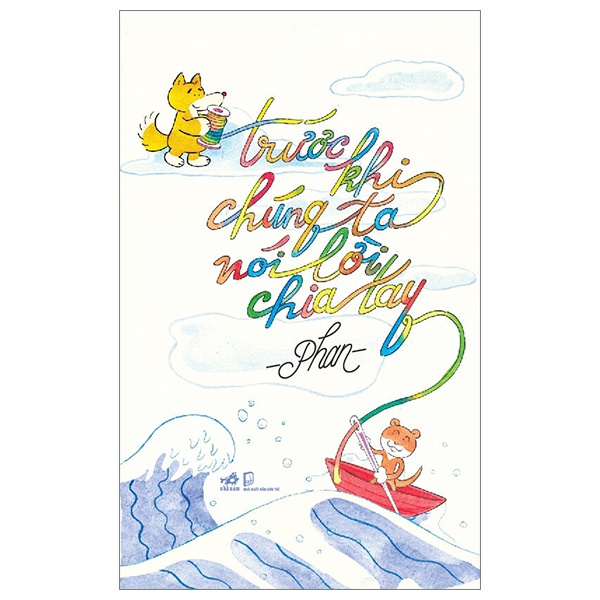 trước khi
chúng ta
nói lời
chia tay
-Phan-
nhã nam
NHÀ XUẤT BẢN DÂN TRÍ